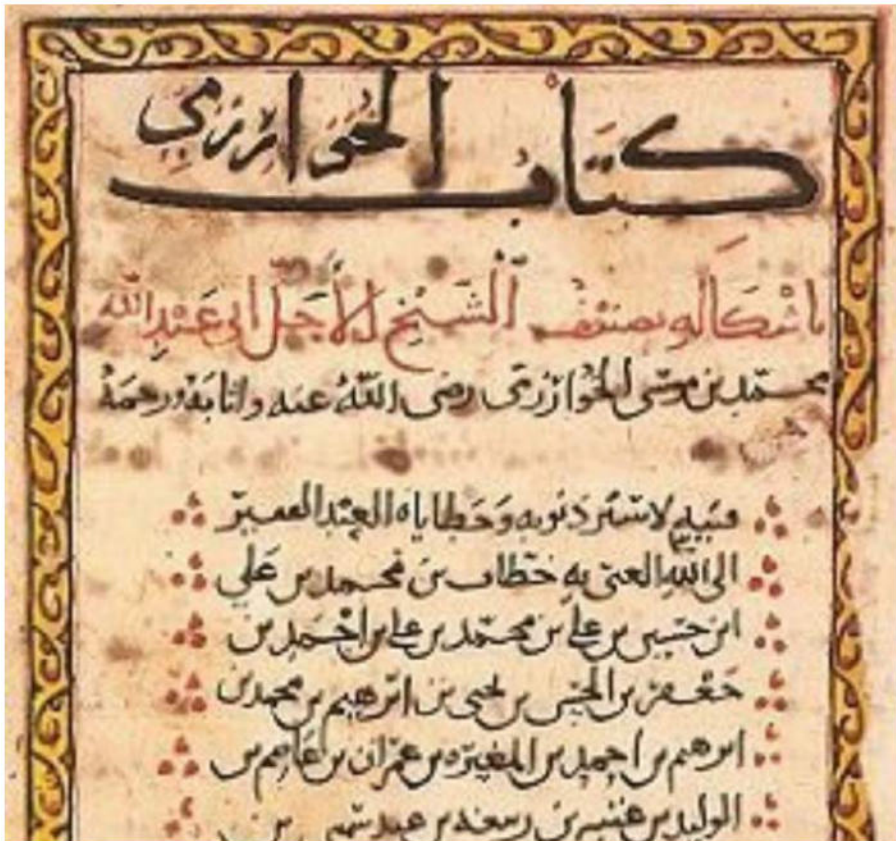 كتاب الخوارزمي
باشكاله تصنيف الشيخ الأجل أبي عبد الله
محمد بن موسى الخوارزمي رضى الله عنه واثابه ورحمه
ذنوبه وخطاياه العبد الفقير
الى الله الغني به خطاب بن محمد بن علي
ابن حسين بن علي بن محمد بن علي بن احمد بن
جعفر بن الحسن بن يحيى بن ابرهيم بن محمد بن
ابرهيم بن احمد بن المغيره بن عمران بن عاصم بن
الوليد بن عتبه بن ربيعه بن عبد شمس بن